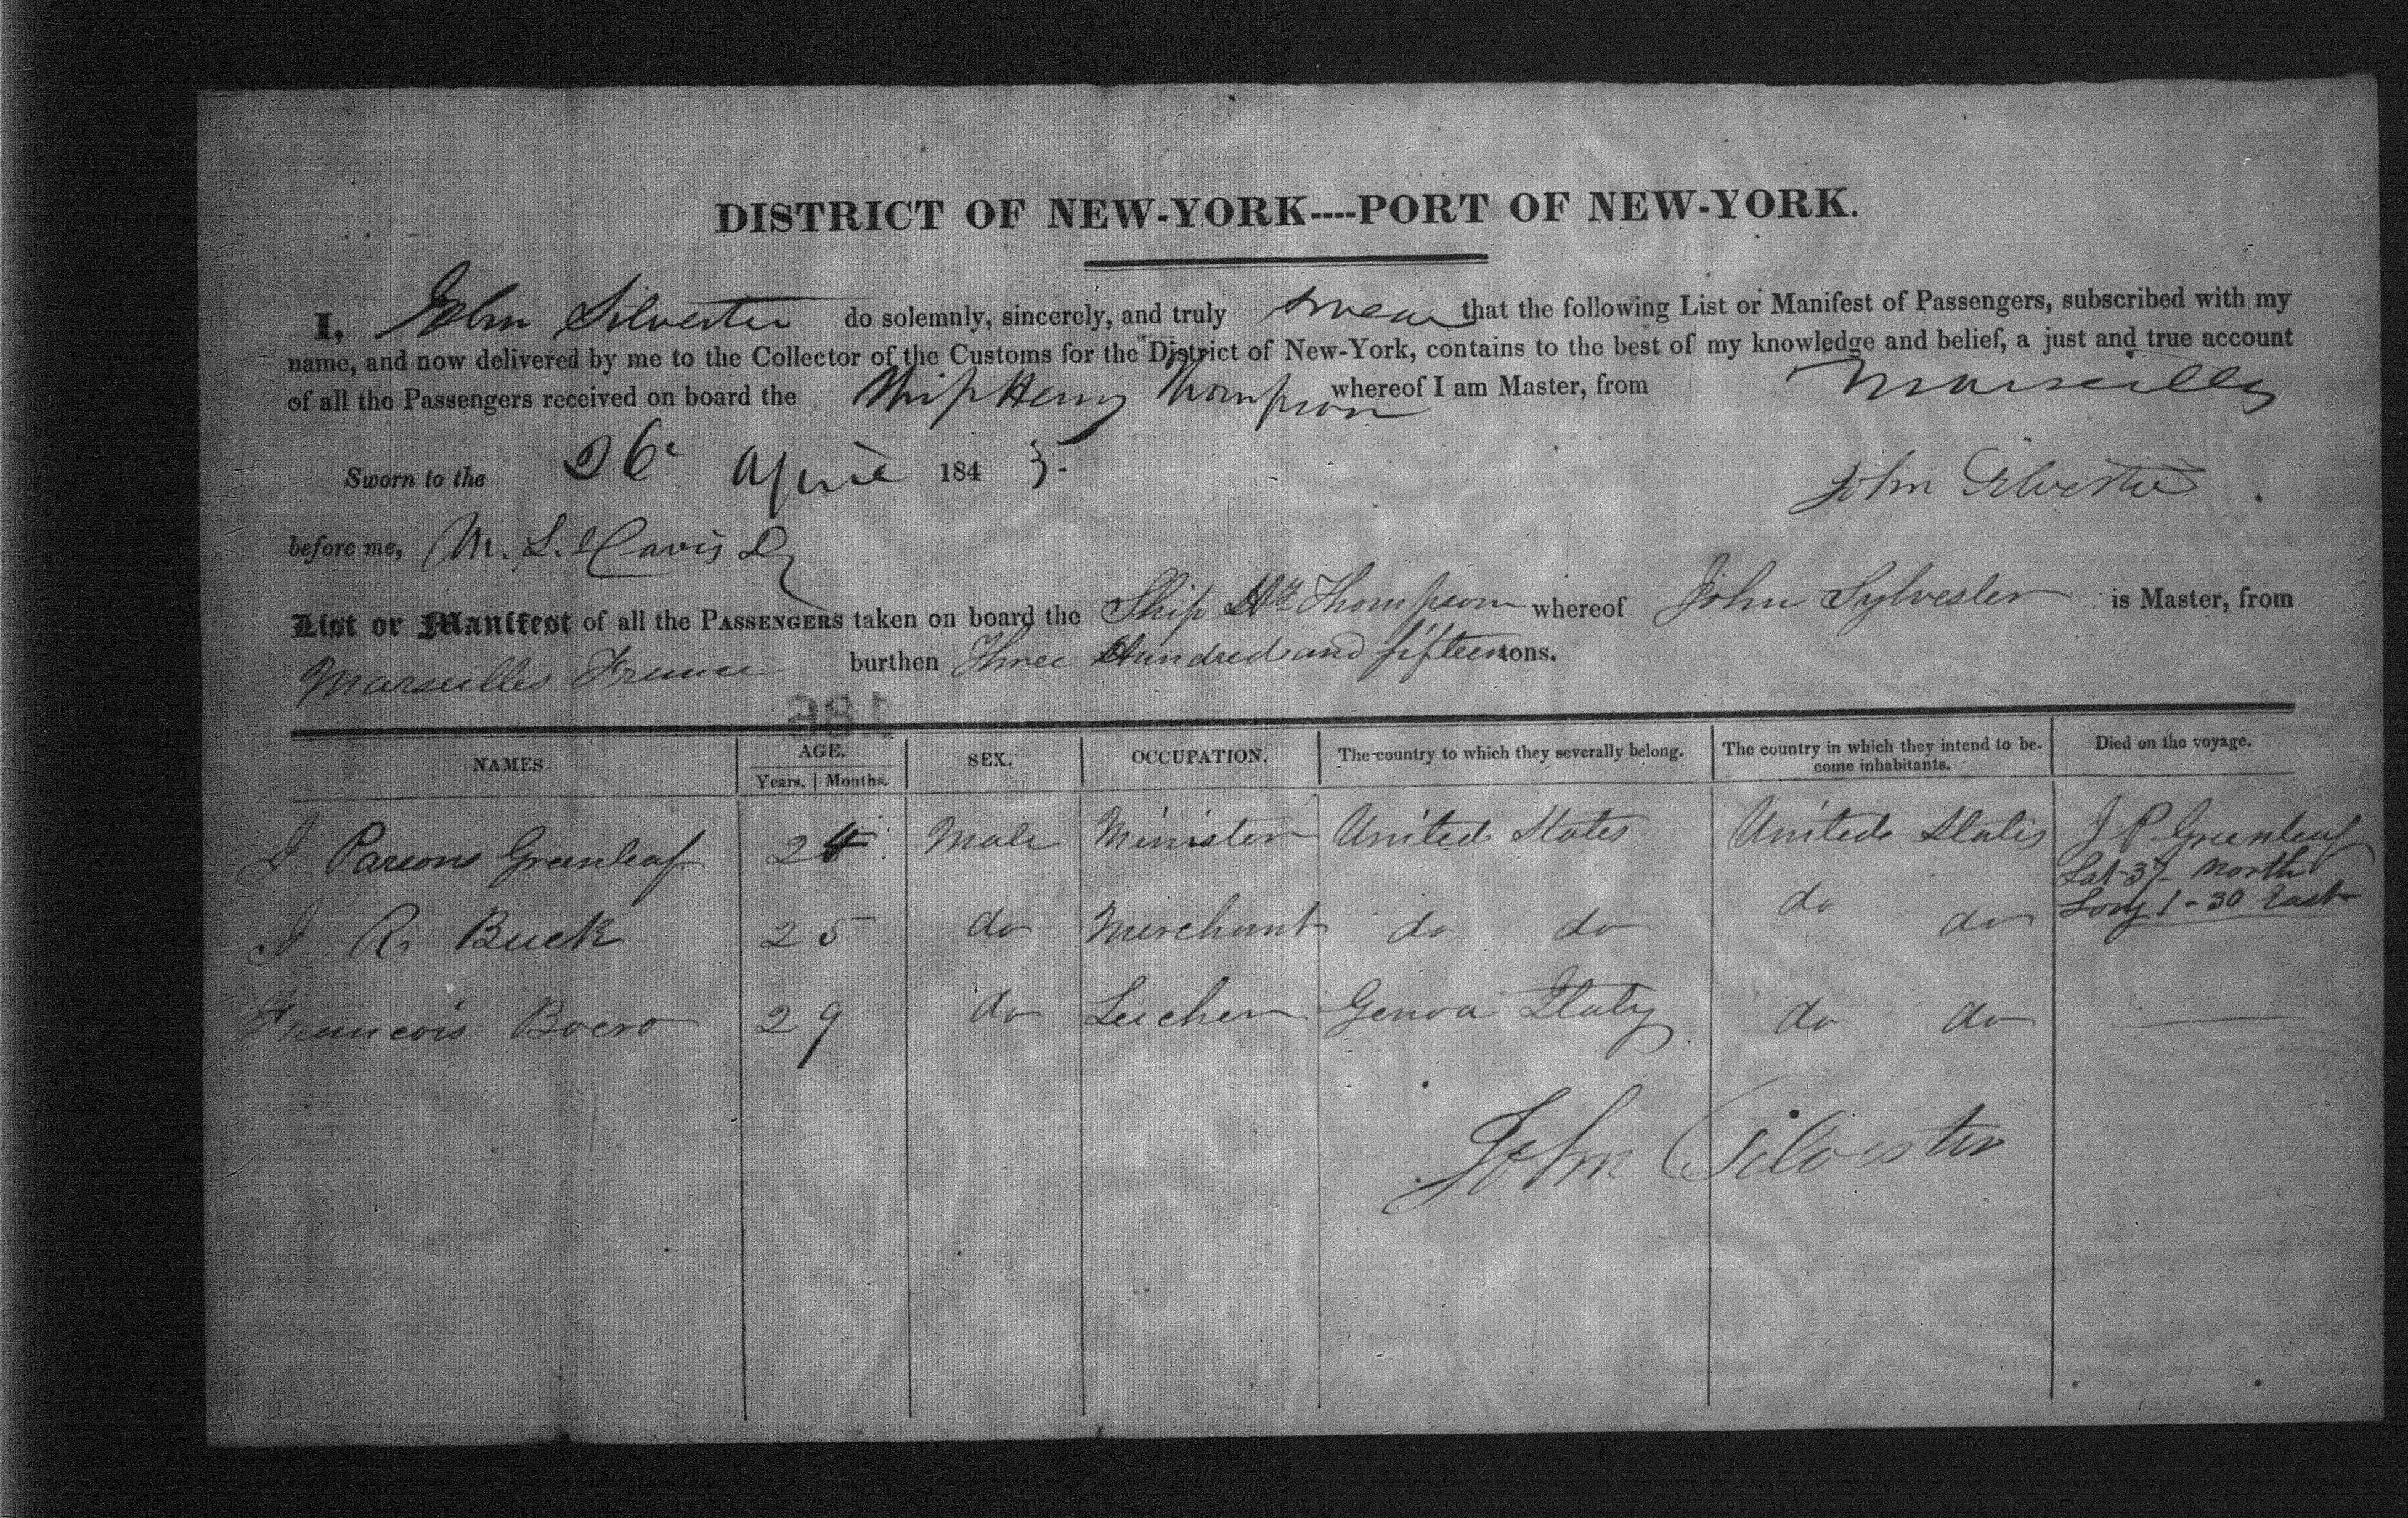 DISTRICT OF NEW-YORK----PORT OF NEW-YORK.
I, John Silvester do solemnly, sincerely, and truly swear that the following List or Manifest of Passengers, subscribed with my
name, and now delivered by me to the Collector of the Customs for the District of New-York, contains to the best of my knowledge and belief, a just and true account
of all the Passengers received on board the Ship Henry Thompson whereof I am Master, from Marseilles
Sworn to the 26 April 1843.
John Silvester
before me, M. L. Davis
List or Manifest of all the PASSENGERS taken on board the Ship Hy Thompson whereof John Sylvester is Master, from
Marseilles France burthen Three Hundred and fifteen tons.
186
NAMES. AGE. SEX. OCCUPATION. The country to which they severally belong. The country in which they intend to be- Died on the voyage.
Years. | Months. come inhabitants.
J Parsons Greenleaf 24 Male Minister United States United States J P Greenleaf
Lat 37 North
Long 1-30 East
J R Buck 25 do Merchant do do do do
Francois Boero 29 do Genoa Italy do do
John Silvester